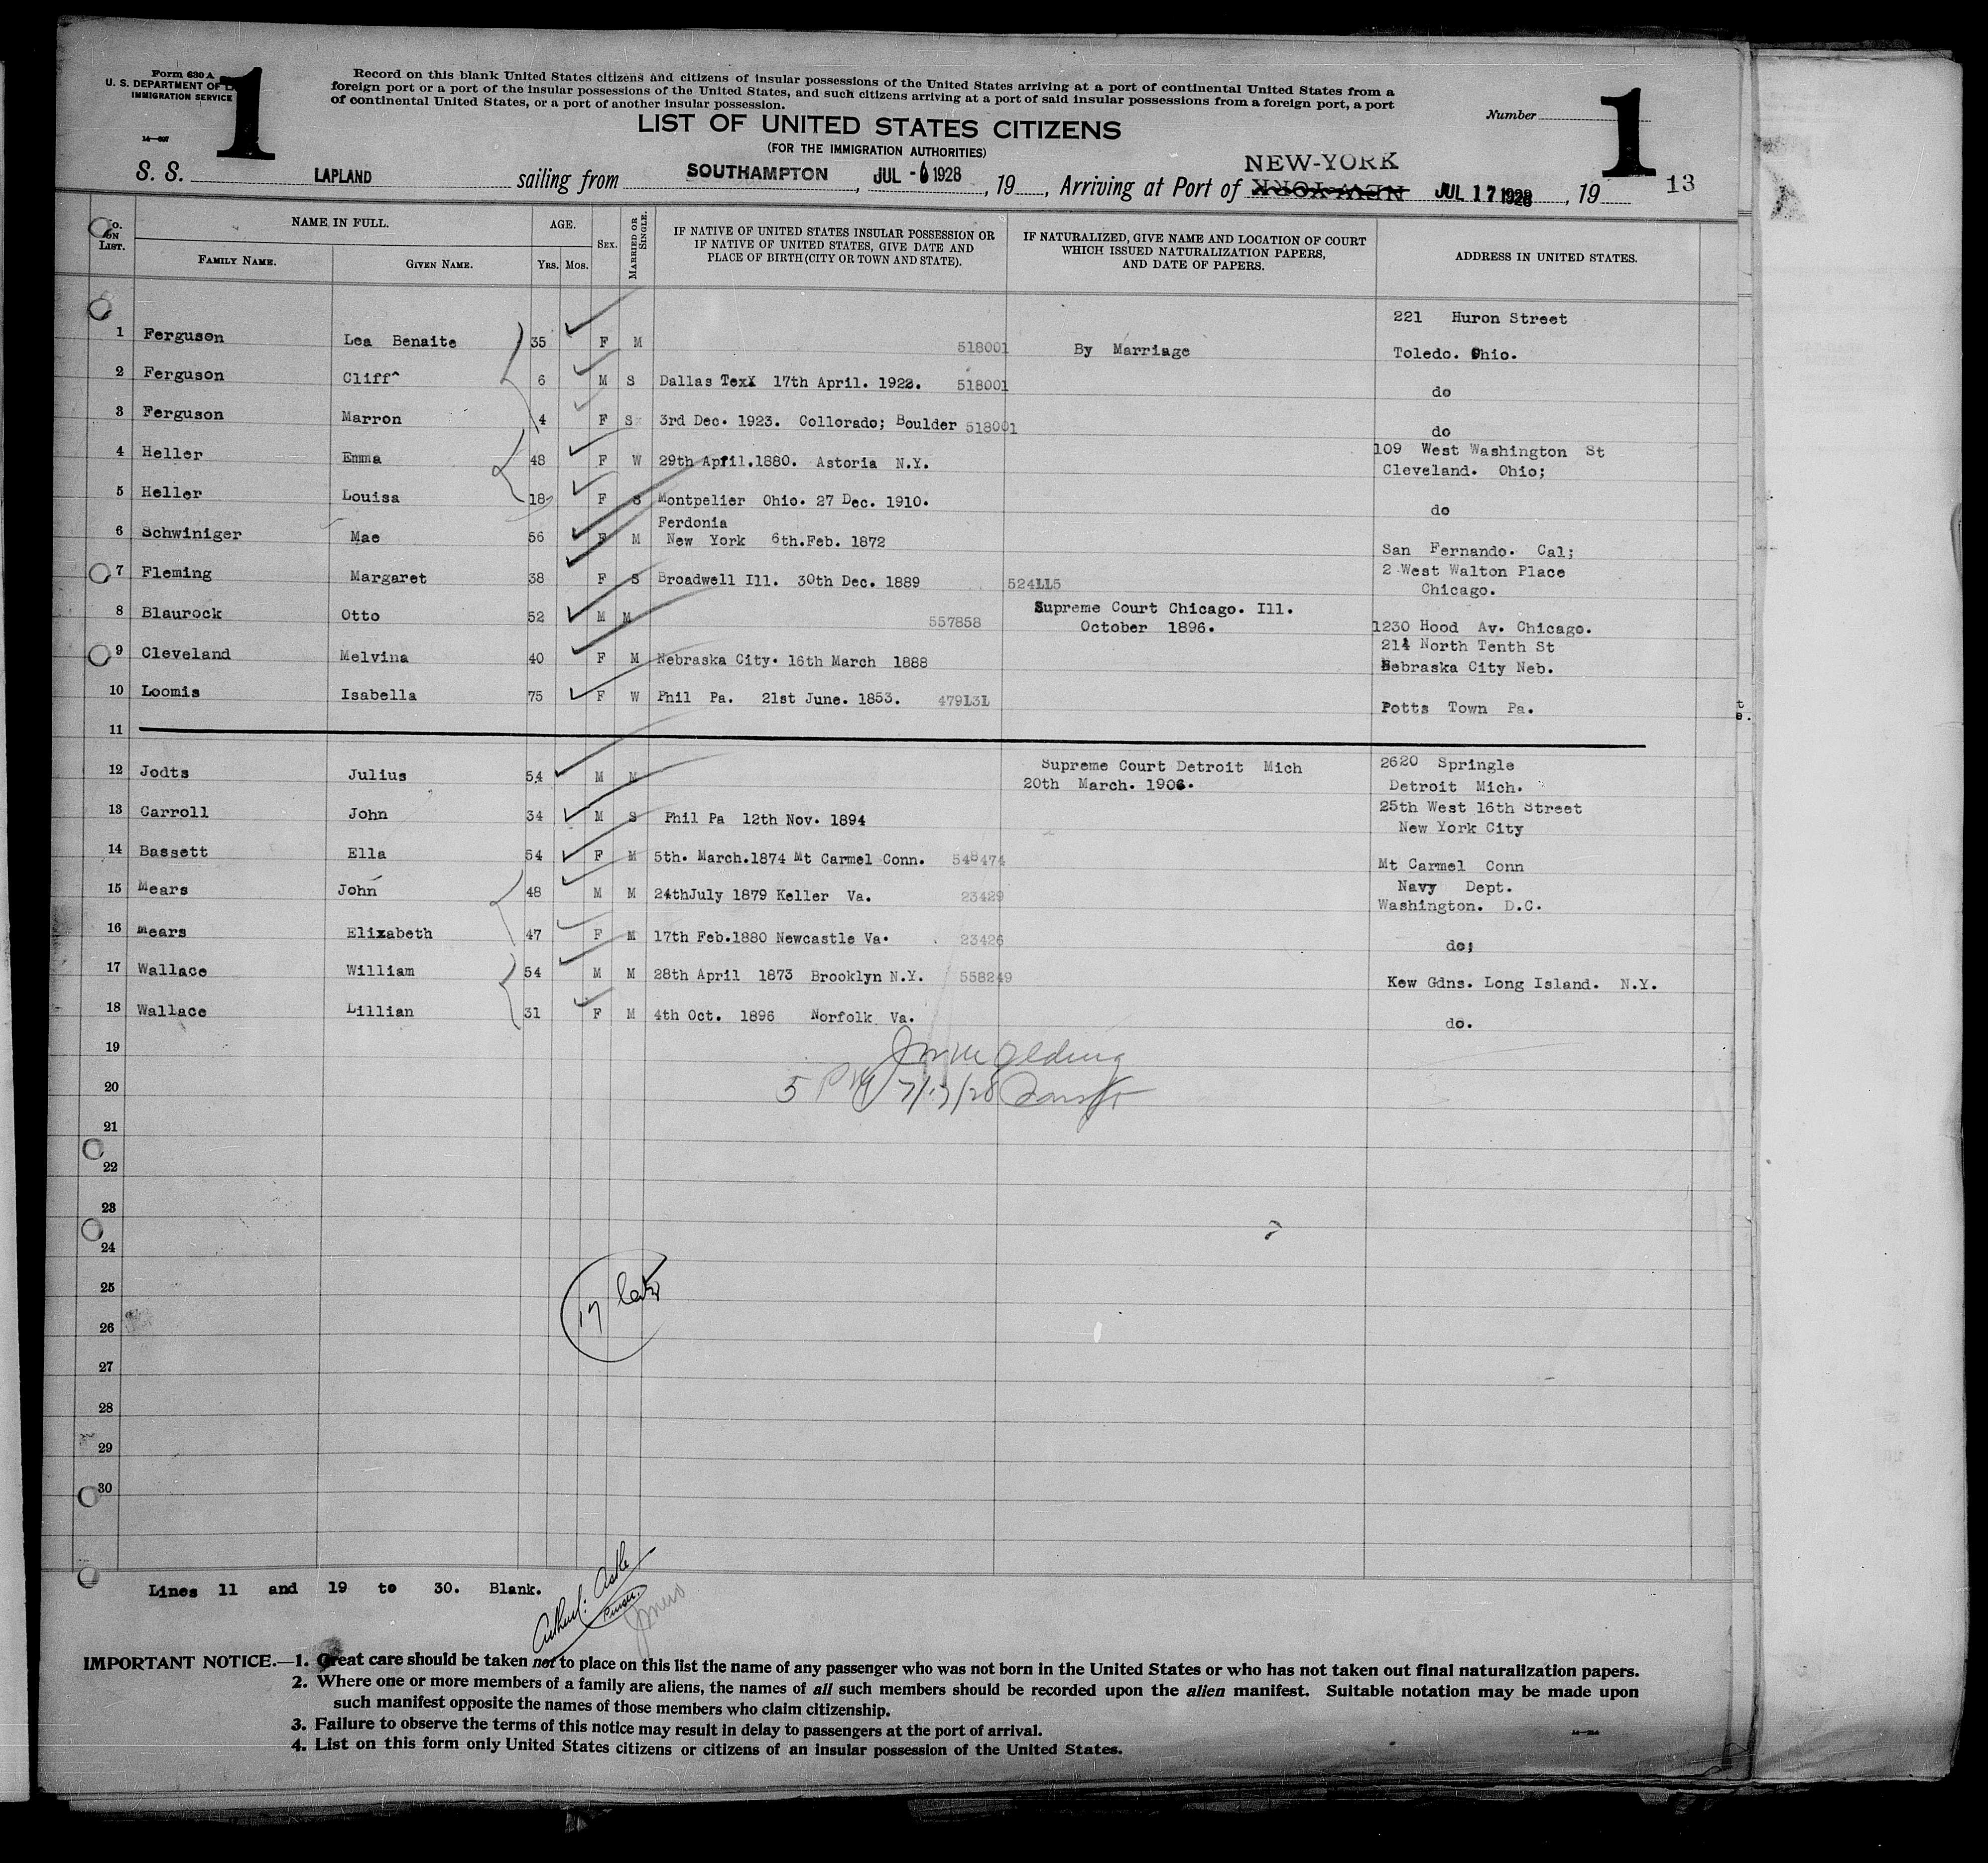 Form 630 A
U. S. DEPARTMENT OF
IMMIGRATION SERVICE
1
Record on this blank United States citizens and citizens of insular possessions of the United States arriving at a port of continental United States from a
foreign port or a port of the insular possessions of the United States, and such citizens arriving at a port of said insular possessions from a foreign port, a port
of continental United States, or a port of another insular possession.
Number
1
LIST OF UNITED STATES CITIZENS
(FOR THE IMMIGRATION AUTHORITIES)
S. S. LAPLAND sailing from SOUTHAMPTON, JUL - 6 1928, 19 , Arriving at Port of NEW-YORK NEW-YORK JUL 17 1928, 19 13
No. ON LIST. NAME IN FULL. AGE. SEX. MARRIED OR SINGLE. IF NATIVE OF UNITED STATES INSULAR POSSESSION OR IF NATIVE OF UNITED STATES, GIVE DATE AND PLACE OF BIRTH (CITY OR TOWN AND STATE). IF NATURALIZED, GIVE NAME AND LOCATION OF COURT WHICH ISSUED NATURALIZATION PAPERS, AND DATE OF PAPERS. ADDRESS IN UNITED STATES.
FAMILY NAME. GIVEN NAME. YRS. MOS.
221 Huron Street
1 Ferguson Lea Benaite 35 F M 518001 By Marriage Toledo. Ohio.
2 Ferguson Cliff^ 6 M S Dallas TexX 17th April. 1922. 518001 do
3 Ferguson Marron 4 F S 3rd Dec. 1923. Collorado; Boulder 518001 do
4 Heller Emma 48 F W 29th April.1880. Astoria N.Y. 109 West Washington St
Cleveland. Ohio;
5 Heller Louisa 18 F S Montpelier Ohio. 27 Dec. 1910. do
Ferdonia
6 Schwiniger Mae 56 F M New York 6th.Feb. 1872 San Fernando. Cal;
7 Fleming Margaret 38 F S Broadwell Ill. 30th Dec. 1889 524LL5 2 West Walton Place
Chicago.
8 Blaurock Otto 52 M M 557858 Supreme Court Chicago. Ill.
October 1896. 1230 Hood Av. Chicago.
9 Cleveland Melvina 40 F M Nebraska City. 16th March 1888 214 North Tenth St
Nebraska City Neb.
10 Loomis Isabella 75 F W Phil Pa. 21st June. 1853. 479L3L Potts Town Pa.
11
12 Jodts Julius 54 M M Supreme Court Detroit Mich 2620 Springle
20th March. 1906. Detroit Mich.
13 Carroll John 34 M S Phil Pa 12th Nov. 1894 25th West 16th Street
New York City
14 Bassett Ella 54 F M 5th. March.1874 Mt Carmel Conn. 548474 Mt Carmel Conn
15 Mears John 48 M M 24thJuly 1879 Keller Va. 23429 Navy Dept.
Washington. D.C.
16 Mears Elizabeth 47 F M 17th Feb.1880 Newcastle Va. 23426 do;
17 Wallace William 54 M M 28th April 1873 Brooklyn N.Y. 558249 Kew Gdns. Long Island. N.Y.
18 Wallace Lillian 31 F M 4th Oct. 1896 Norfolk Va. do.
19
20 5 PM 7/17/28
21
22
23
24
25
26
27
28
29
30
Lines 11 and 19 to 30. Blank.
Purser.
IMPORTANT NOTICE.—1. Great care should be taken not to place on this list the name of any passenger who was not born in the United States or who has not taken out final naturalization papers.
2. Where one or more members of a family are aliens, the names of all such members should be recorded upon the alien manifest. Suitable notation may be made upon
such manifest opposite the names of those members who claim citizenship.
3. Failure to observe the terms of this notice may result in delay to passengers at the port of arrival.
4. List on this form only United States citizens or citizens of an insular possession of the United States.